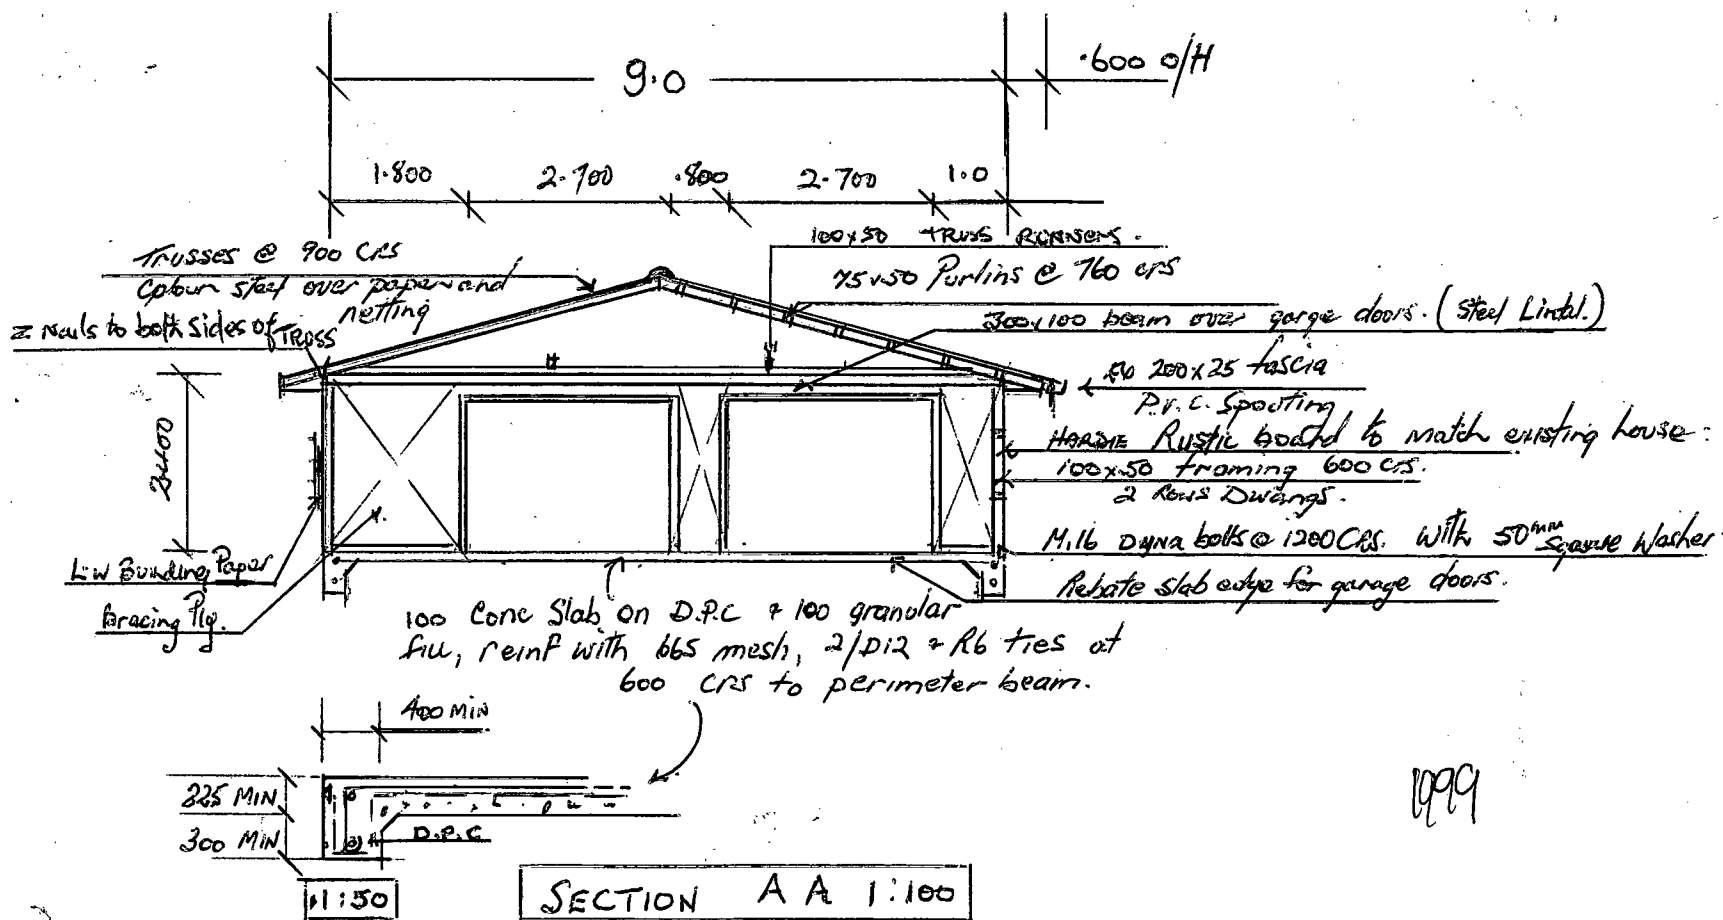 9.0
.600 O/H
1.800 2.700 .800 2.700 1.0
Trusses @ 900 CRS
Colour steel over paper and
netting
Z Nails to both sides of TRUSS
100x50 TRUSS RUNNERS.
75x50 Purlins @ 760 crs
300x100 beam over garge doors. (Steel Lintal.)
200x25 fascia
P.V.C. Spouting
HARDIE Rustic board to match existing house.
100x50 framing 600 crs.
2 Rows Dwangs.
M.16 Dyna bolts @ 1200 CRS. With 50mm Square Washer
Rebate slab edge for garage doors.
2400
Building Paper
Bracing Ply.
100 Conc Slab on D.P.C + 100 granular
fill, reinf with 665 mesh, 2/D12 + R6 ties at
600 crs to perimeter beam.
400 MIN
225 MIN
300 MIN
D.P.C
1:50
SECTION A A 1:100
1999